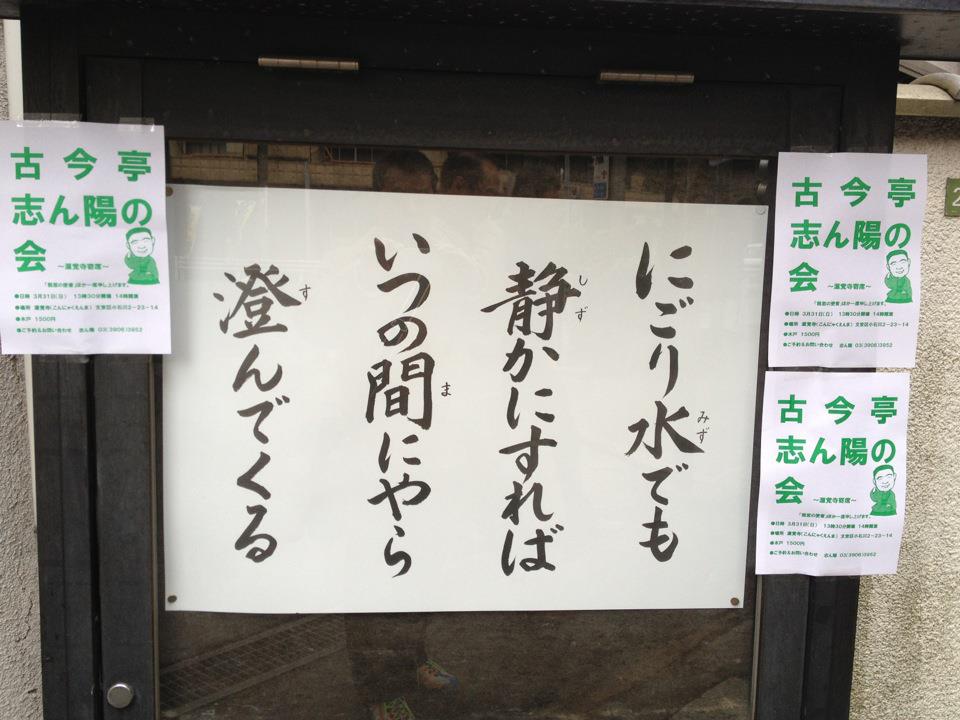 にごり水でも
みず
静かにすれば
しず
いつの間にやら
ま
澄んでくる
す
古今亭
志ん陽の
会
～源覚寺寄席～
●日時 3月31日(日) 13時30分開場 14時開演
●場所 源覚寺(こんにゃくえんま) 文京区小石川2-23-14
●木戸 1500円
●ご予約&お問い合わせ 志ん陽 03(3906)3952
古今亭
志ん陽の
会
～源覚寺寄席～
●日時 3月31日(日) 13時30分開場 14時開演
●場所 源覚寺(こんにゃくえんま) 文京区小石川2-23-14
●木戸 1500円
●ご予約&お問い合わせ 志ん陽 03(3906)3952
古今亭
志ん陽の
会
～源覚寺寄席～
●日時 3月31日(日) 13時30分開場 14時開演
●場所 源覚寺(こんにゃくえんま) 文京区小石川2-23-14
●木戸 1500円
●ご予約&お問い合わせ 志ん陽 03(3906)3952
2